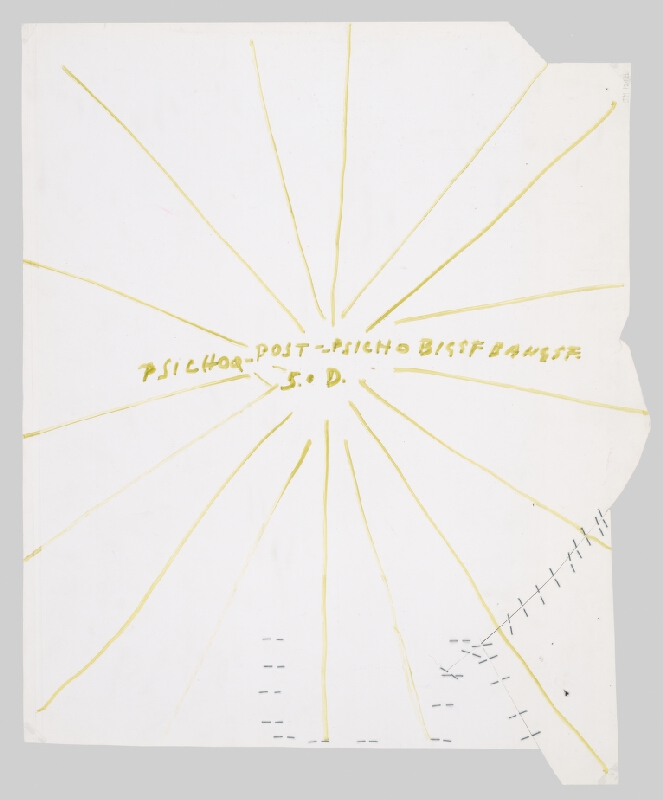 PSICHOQ-POST-PSICHO BIGSF BANGSF.
S.° D.